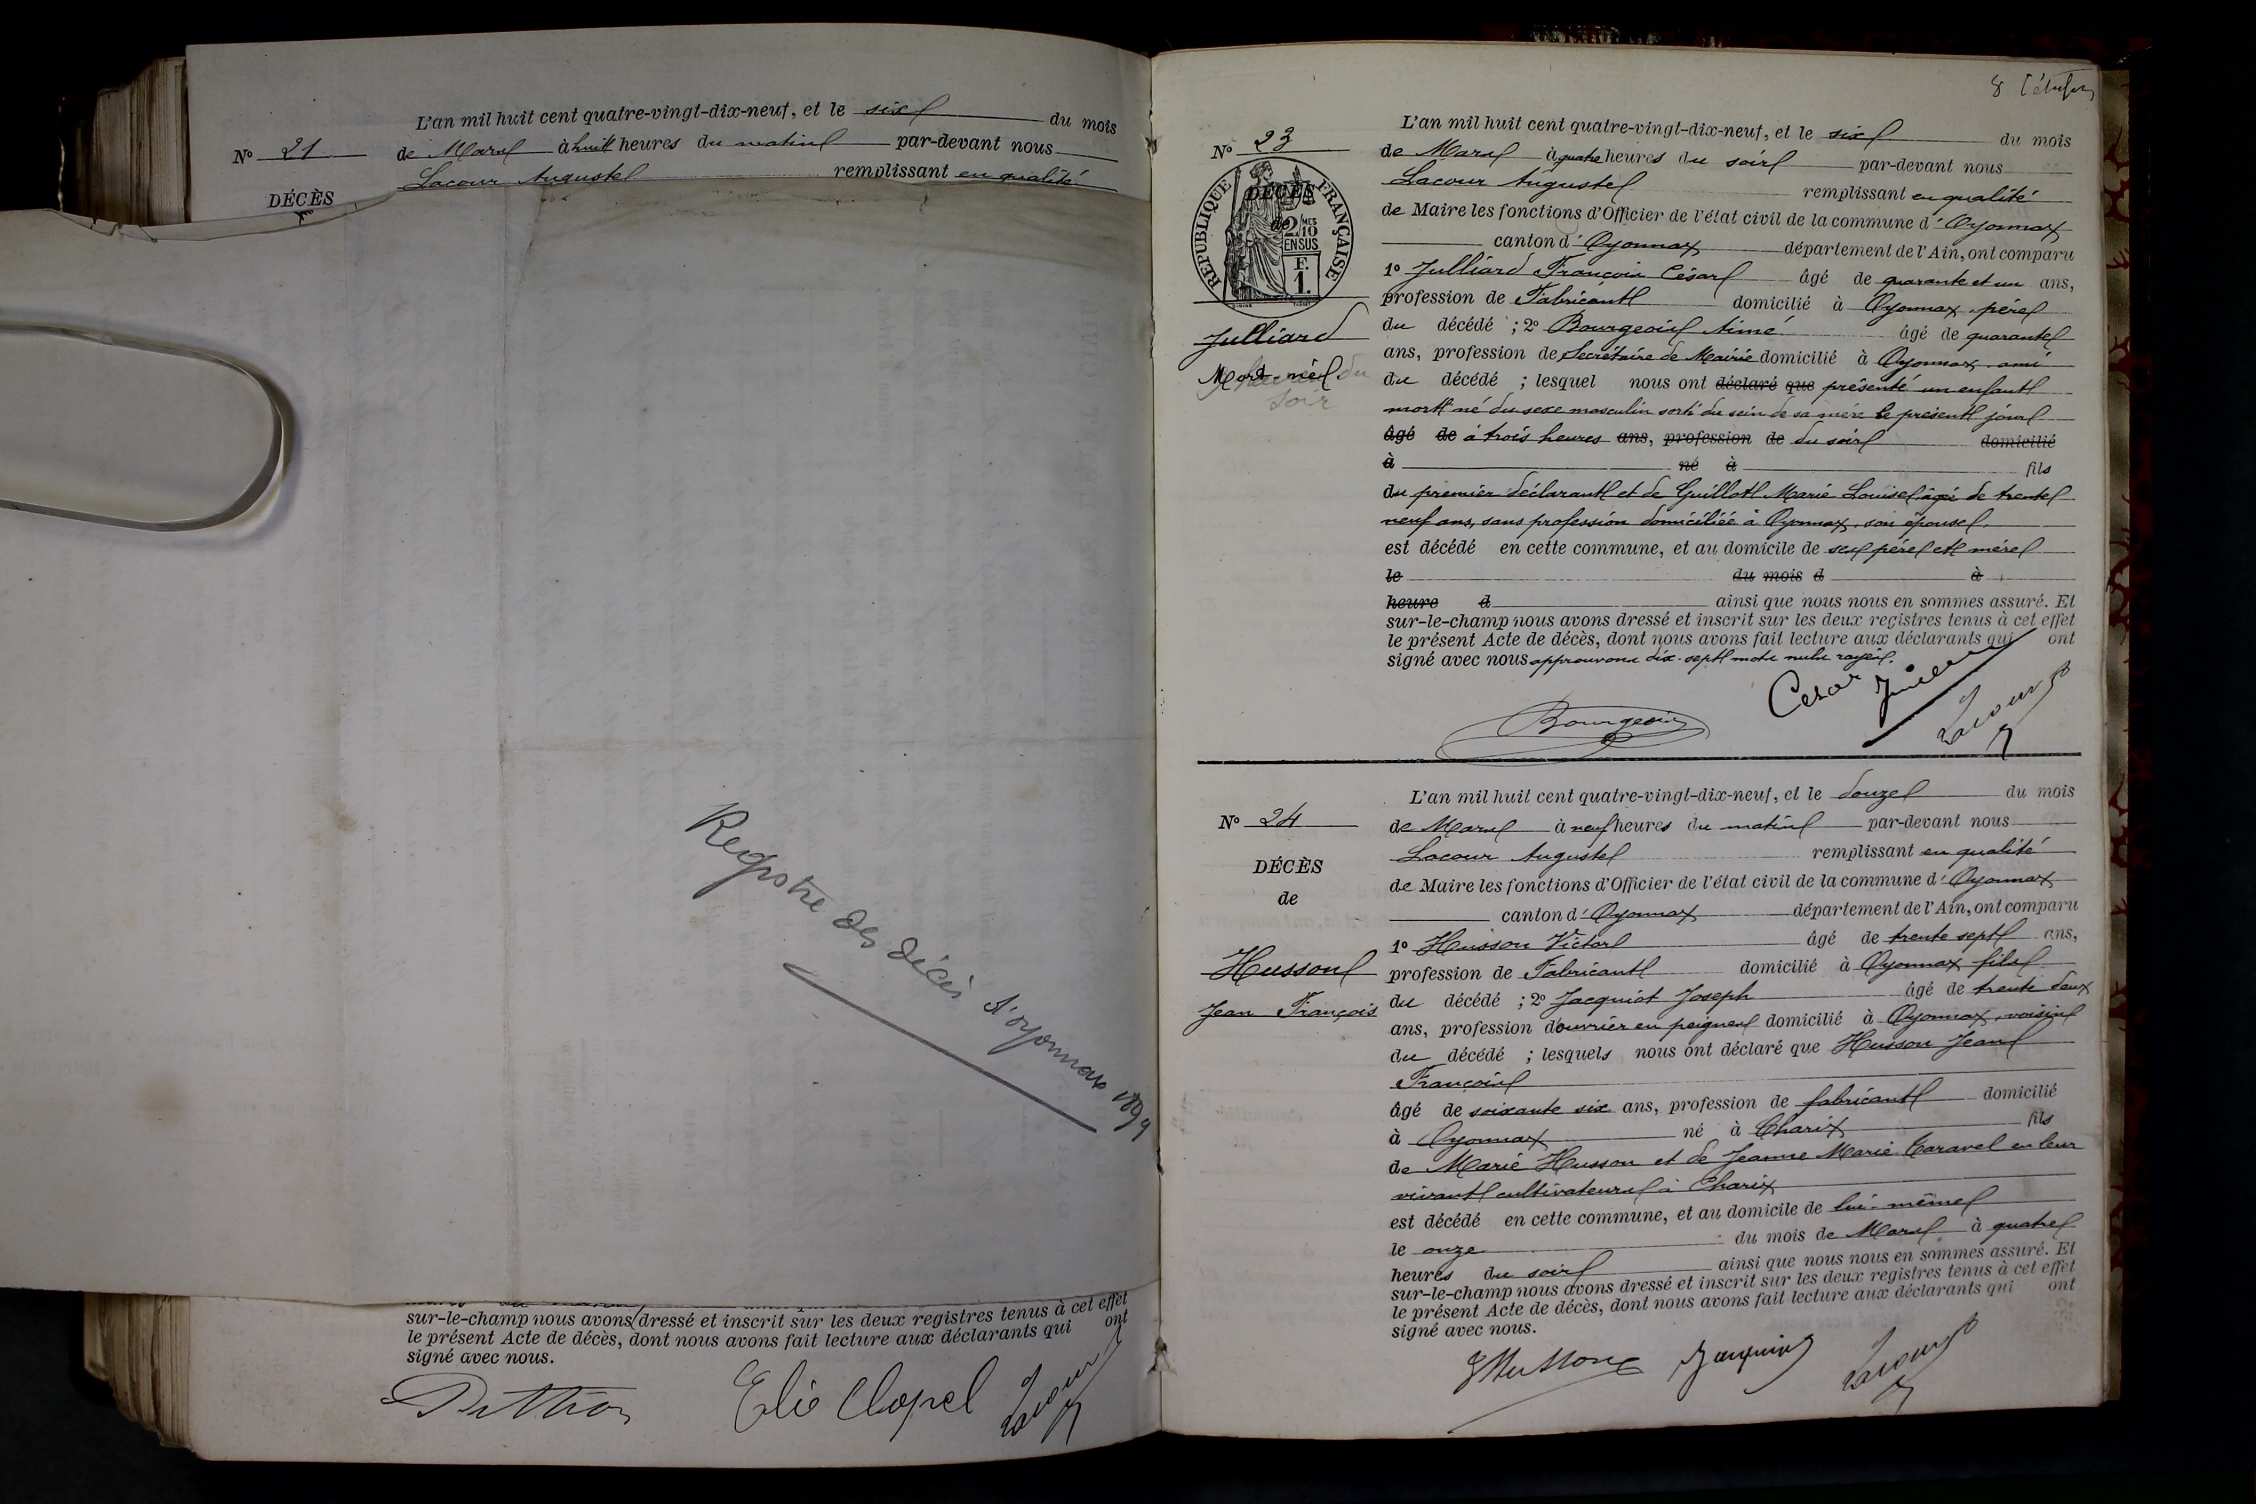 L'an mil huit cent quatre-vingt-dix-neuf, et le six du mois
N° 21
de Mars à huit heures du matin par-devant nous
Lacour Auguste remplissant en qualité
DÉCÈS
Registre des décès d'oyonnax 1899
sur-le-champ nous avons dressé et inscrit sur les deux registres tenus à cet effet
le présent Acte de décès, dont nous avons fait lecture aux déclarants qui ont
signé avec nous.
Elie Chapel Lacour
8
N° 23
L'an mil huit cent quatre-vingt-dix-neuf, et le six du mois
de Mars à quatre heures du soir par-devant nous
Lacour Auguste remplissant en qualité
de Maire les fonctions d'Officier de l'état civil de la commune d'Oyonnax
canton d'Oyonnax département de l'Ain, ont comparu
RÉPUBLIQUE FRANÇAISE
DÉCÈS
de
2/10 MES
EN SUS
F.
1.
Julliard
Mort-né
du
soir
1° Julliard François César âgé de quarante et un ans,
profession de Fabricant domicilié à Oyonnax, père
du décédé ; 2° Bourgeois Aimé âgé de quarante
ans, profession de Secrétaire de Mairie domicilié à Oyonnax, ami
du décédé ; lesquel nous ont déclaré que présenté un enfant
mort né du sexe masculin sorti du sein de sa mère le présent jour
âgé de à trois heures ans, profession de du soir domicilié
à né à fils
du premier déclarant et de Guillot Marie Louise âgée de trente
neuf ans, sans profession domiciliée à Oyonnax, son épouse,
est décédé en cette commune, et au domicile de ses père et mère
le du mois d à
heure d ainsi que nous nous en sommes assuré. Et
sur-le-champ nous avons dressé et inscrit sur les deux registres tenus à cet effet
le présent Acte de décès, dont nous avons fait lecture aux déclarants qui ont
signé avec nous approuvons dix-sept mots nuls rayés.
Bourgeois César Lacour
N° 24
DÉCÈS
de
Husson
Jean François
L'an mil huit cent quatre-vingt-dix-neuf, et le douze du mois
de Mars à neuf heures du matin par-devant nous
Lacour Auguste remplissant en qualité
de Maire les fonctions d'Officier de l'état civil de la commune d'Oyonnax
canton d'Oyonnax département de l'Ain, ont comparu
1° Husson Victor âgé de trente sept ans,
profession de Fabricant domicilié à Oyonnax fils
du décédé ; 2° Jacquiot Joseph âgé de trente deux
ans, profession d'ouvrier en peignes domicilié à Oyonnax, voisin
du décédé ; lesquels nous ont déclaré que Husson Jean
François
âgé de soixante six ans, profession de fabricant domicilié
à Oyonnax né à Charix fils
de Marie Husson et de Jeanne Marie Caravel en leur
vivant cultivateurs à Charix
est décédé en cette commune, et au domicile de lui-même
le onze du mois de Mars à quatre
heures du soir ainsi que nous nous en sommes assuré. Et
sur-le-champ nous avons dressé et inscrit sur les deux registres tenus à cet effet
le présent Acte de décès, dont nous avons fait lecture aux déclarants qui ont
signé avec nous.
V Husson Jacquiot Lacour